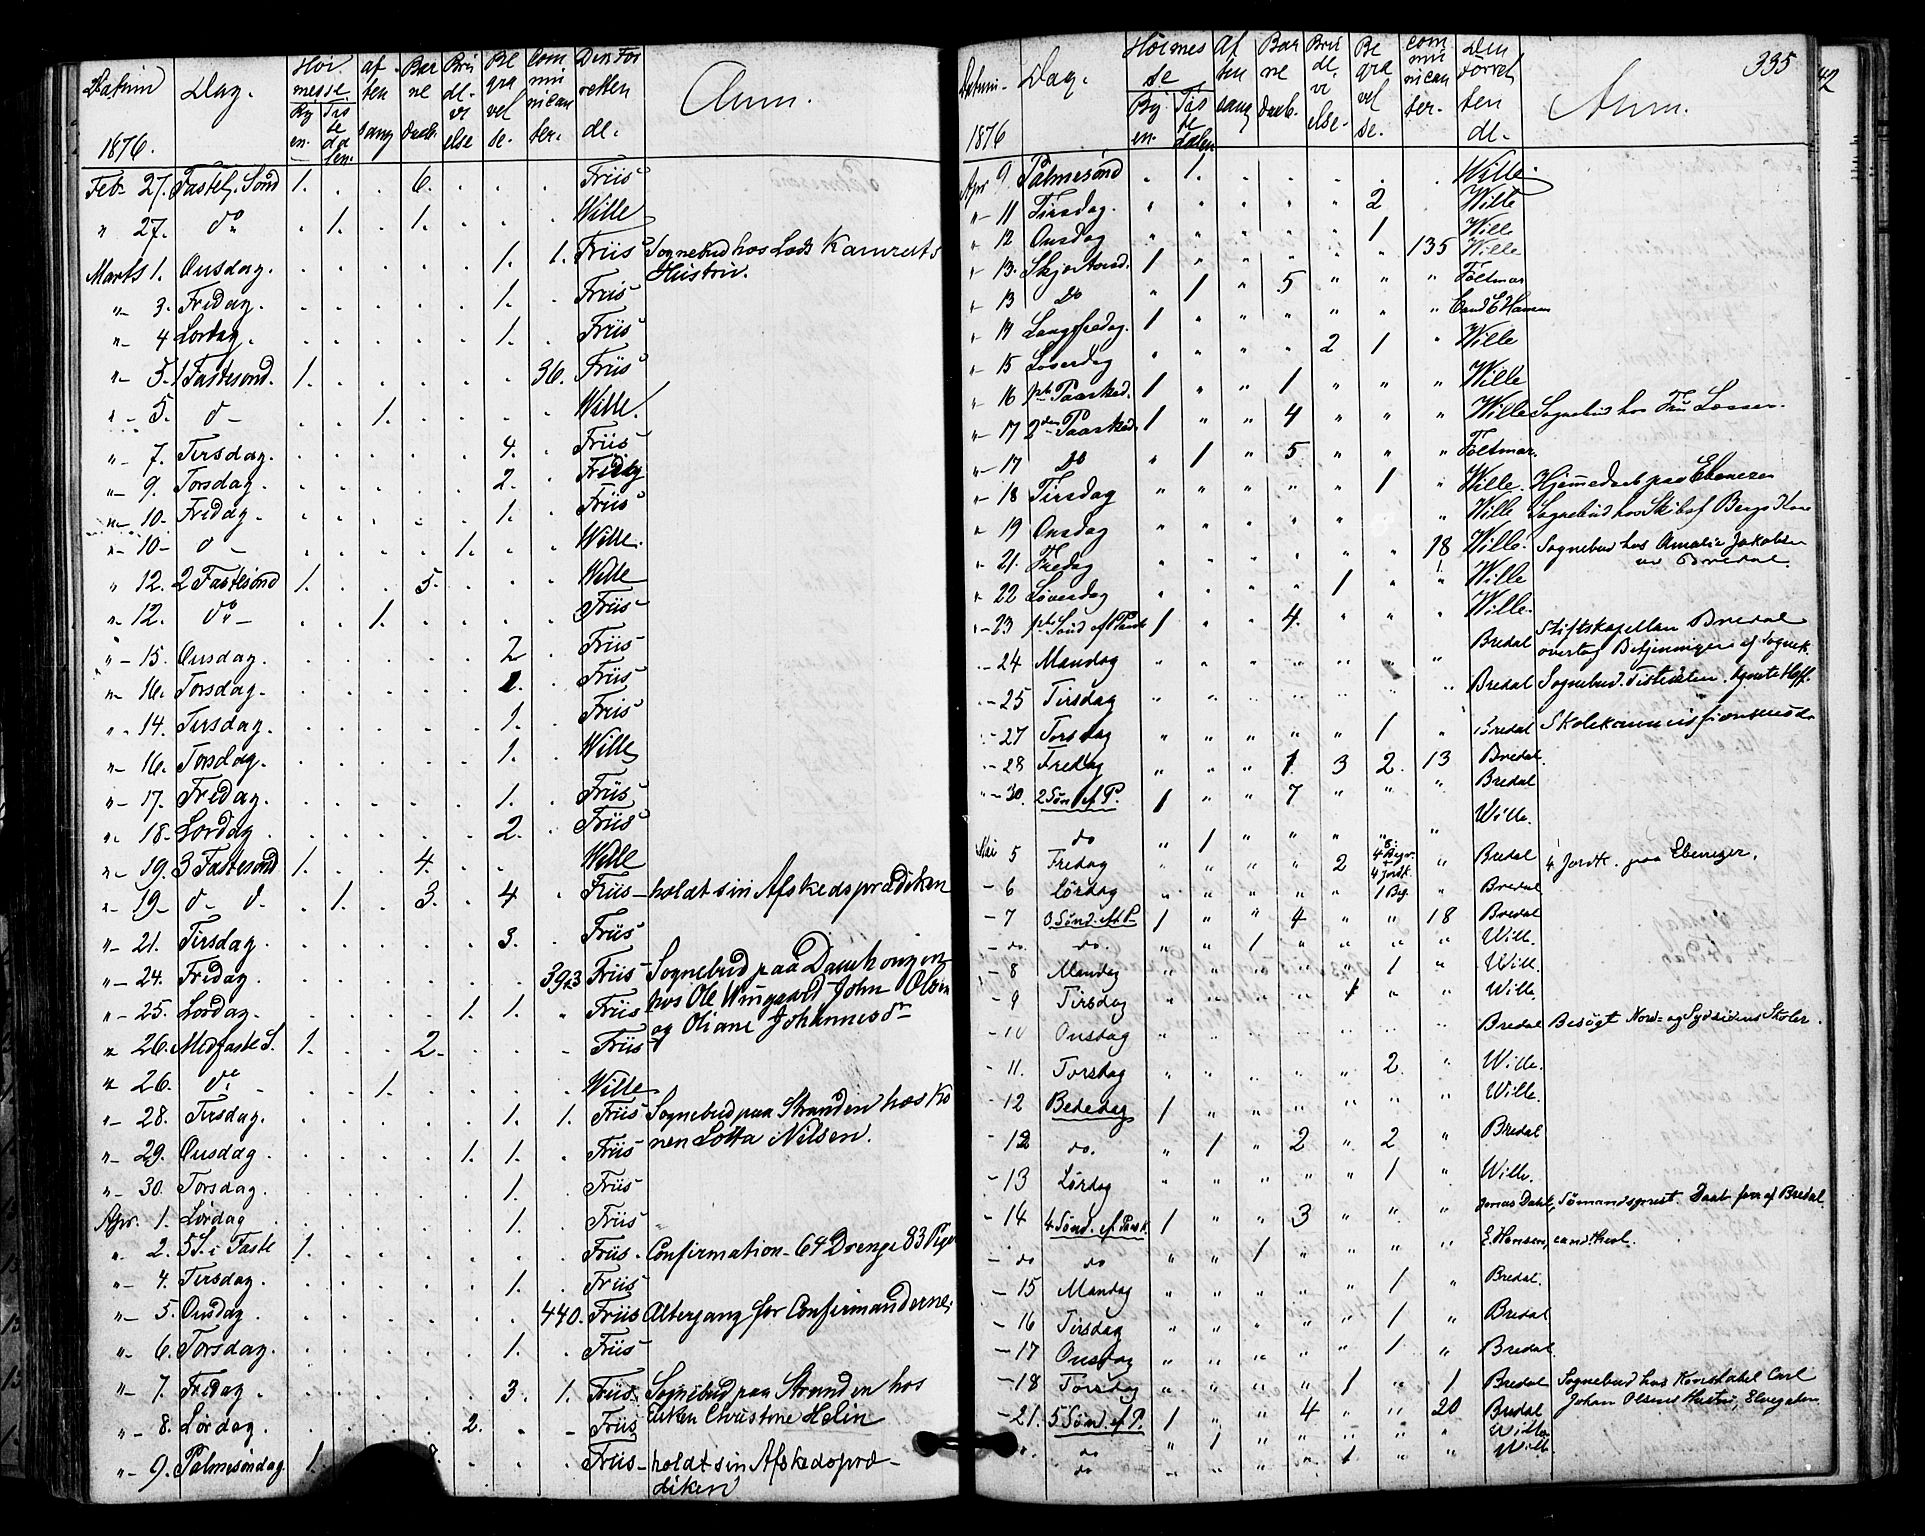 Datum Dag. Høimesse Aftensang Barnedaab. Brudevielse Begravelse. Communicanter. Den Forrettende. Anm.
1876. Byen. Tistedalen.
Feb. 27. Fastel. Sønd 1. . . 6. . . . Friis
" 27. do . 1. . 1. . . . Wille
Marts 1. Onsdag. . . . . . 1. 1. Friis Sognebud hos Lods Kamruts
Hustru.
"- 3. Fredag. . . . . . 1. . Friis
"- 4 Lørdag. . . . . . 1. . Friis
"- 5. 1 Fastesønd. 1. . . . . . 36. Friis
"- 5. d- . . 1. . . . . Wille.
"- 7. Tirsdag. . . . . . 4. . Friis
"- 9. Torsdag. . . . . . 2. .
"- 10. Fredag. . . . . . 1. . Friis
"- 10- d- . . . . 1. . . Wille.
" 12. 2 Fastesønd 1. . . 5. . . . Wille
"- 12. do- . . 1. . . . . Friis
"- 15. Onsdag. . . . . . 2 . Friis
"- 16. Torsdag. . . . . . 1. . Friis
"- 14. Tirsdag. . . . . . 1. . Friis
"- 16. Torsdag. . . . . . 1. . Wille
"- 17. Fredag. . . . . . 1. . Friis
"- 18. Lørdag. . . . . . 2. . Friis
"- 19. 3 Fastesønd 1. . . 4. . . . Wille
"- 19- d- d- . 1. . 3. . 4 . Friis- holdt sin Afskedsprædiken
"- 21. Tirsdag. . . . . . 3. . Friis
"- 24. Fredag. . . . . . . 393 Friis- Sognebud paa
"- 25. Lørdag. . . . . 1. 1. . Friis hos Ole Wingaard- John Olsen
og Oliane Johannesdr
"- 26. Midfaste S. 1. . . 2. . . . Friis
"- 26. do - . . 1. . . . . Wille
"- 28. Tirsdag. . . . . . 1. 1. Friis Sognebud paa Stranden hos Ko
nen Lotta Nilsen.
"- 29. Onsdag. . . . . 1. 1. . Friis
"- 30. Torsdag. . . . . . 1. . Friis
Apr. 1. Lørdag . . . . . 1. . Friis
" 2. 5 S. i Faste 1. . . . . . . Friis- Confirmation- 64 Drenge 83 Piger
"- 4. Tirsdag. . . . . . 1. . Friis
"- 5. Onsdag . . . . . . 440. Friis Altergang for Confirmanderne.
"- 6. Torsdag. . . . . . 1. . Friis
"- 7. Fredag . . . . . 3. 1. Friis. Sognebud paa Stranden hos
Christine Helin
"- 8. Lørdag. . . . . 2. . . Friis
"- 9. Palmesøndag 1. . . . . . Friis- holdt sin Afskedspræ-
diken
335
42
Datum- Dag. Høimesse Aftensang Barnedaab. Brudevielse- Begravelse. Communicanter- Den Forrettende- Anm.
1876 Byen- Tistedalen
Apr 9. Palmesønd . 1. . . . . . Wille.
"- 11 Tirsdag. " " " " " 2 . Wille
"- 12 Onsdag " " " " " 1 . Wille
"- 13. Skjertorsd. 1 " " " " " 135 Wille
"- 13 Do " 1 " 5 " " " Foltmar
"- 14 Langfredag. 1 " " " " " " Cand E Hansen
"- 15 Løverdag " " " " 2 1 " Wille
"- 16 1ste Paasked. 1 " " 1 " " " Wille
"- 17 2den Paasked. 1 " " 4 " " " Wille Sognebud hos Fru
"- 17 Do " 1 " 5 " " " Foltmar.
"- 18 Tirsdag " " " " " 1 " Wille. Hjemmedaab paa Ebenezer
"- 19 Onsdag " " " " " " Wille Sognebud hos Skibsf Bergs Kone
"- 21. Fredag " " " " " " 18 Wille. Sognebud hos Amalie Jakobsen
av Bredal.
"- 22 Løverdag " " " " 1 " 1 Wille
"- 23 1ste Sønd ef Paask 1 " " 4. " " " Wille.
Stiftskapellan Bredal
"- 24 Mandag " " " " " " " Bredal overtog Betjeningen af Sognek.
"- 25 Tirsdag " " " " " " " Bredal Sognebud. Tistedalen.
"- 27 Torsdag " " " " " 1 " Bredal Skolekommissionsmøde
"- 28 Fredag " " " 1. 3 2. 13 Bredal.
"- 30. 2 Søn. ef P. 1 " " 7 " " " Bredal
do " 1 " " " " " Wille.
Mai 5 Fredag " " " " 2 4 Begr. 4 Jordk. " Bredal 4 Jordk. paa Ebenezer.
- 6 Lørdag " " " " " 1 Beg. " Bredal
- 7 3 Sønd. ef. P- 1 " " 4 " " 18 Bredal
- do. do. " " 1 " " " " Will.
- 8 Mandag " " " " " 1 " Will.
- 9 Tirsdag " " " " 1 " " Wille.
- 10 Onsdag " " " " " " " Bredal Besøgt Nord- og Sydsidens Skoler.
- 11. Torsdag " " " " " 2. " Wille.
- 12 Bededag 1 " " " " " " Wille.
- 12 do. " 1 " 2 " 2 " Bredal
- 13 Lørdag " " " " " 1 " Wille.
- 14 4 Sønd. ef. Paask. 1 " " 3 " " " Jonas Dahl, Sømandsprest. Daab forr. af Bredal.
- do do " " 1 " " " " E. Hansen, cand. theol.
- 15 Mandag " " " " " 1 " Bredal.
- 16 Tirsdag " " " " " 1 " Bredal
- 17 Onsdag " " " " " 1 " Bredal.
- 18 Torsdag " " " " 1 " 1 Bredal Sognebud hos Konstabel Carl
Johan Olsens Hustru, Elvegaten
- 21. 5 Sønd. ef P. 1 " " 4 " " 20 Bredal
". do " 1 " " " " " Wille
do " " " " 1 " " Will.